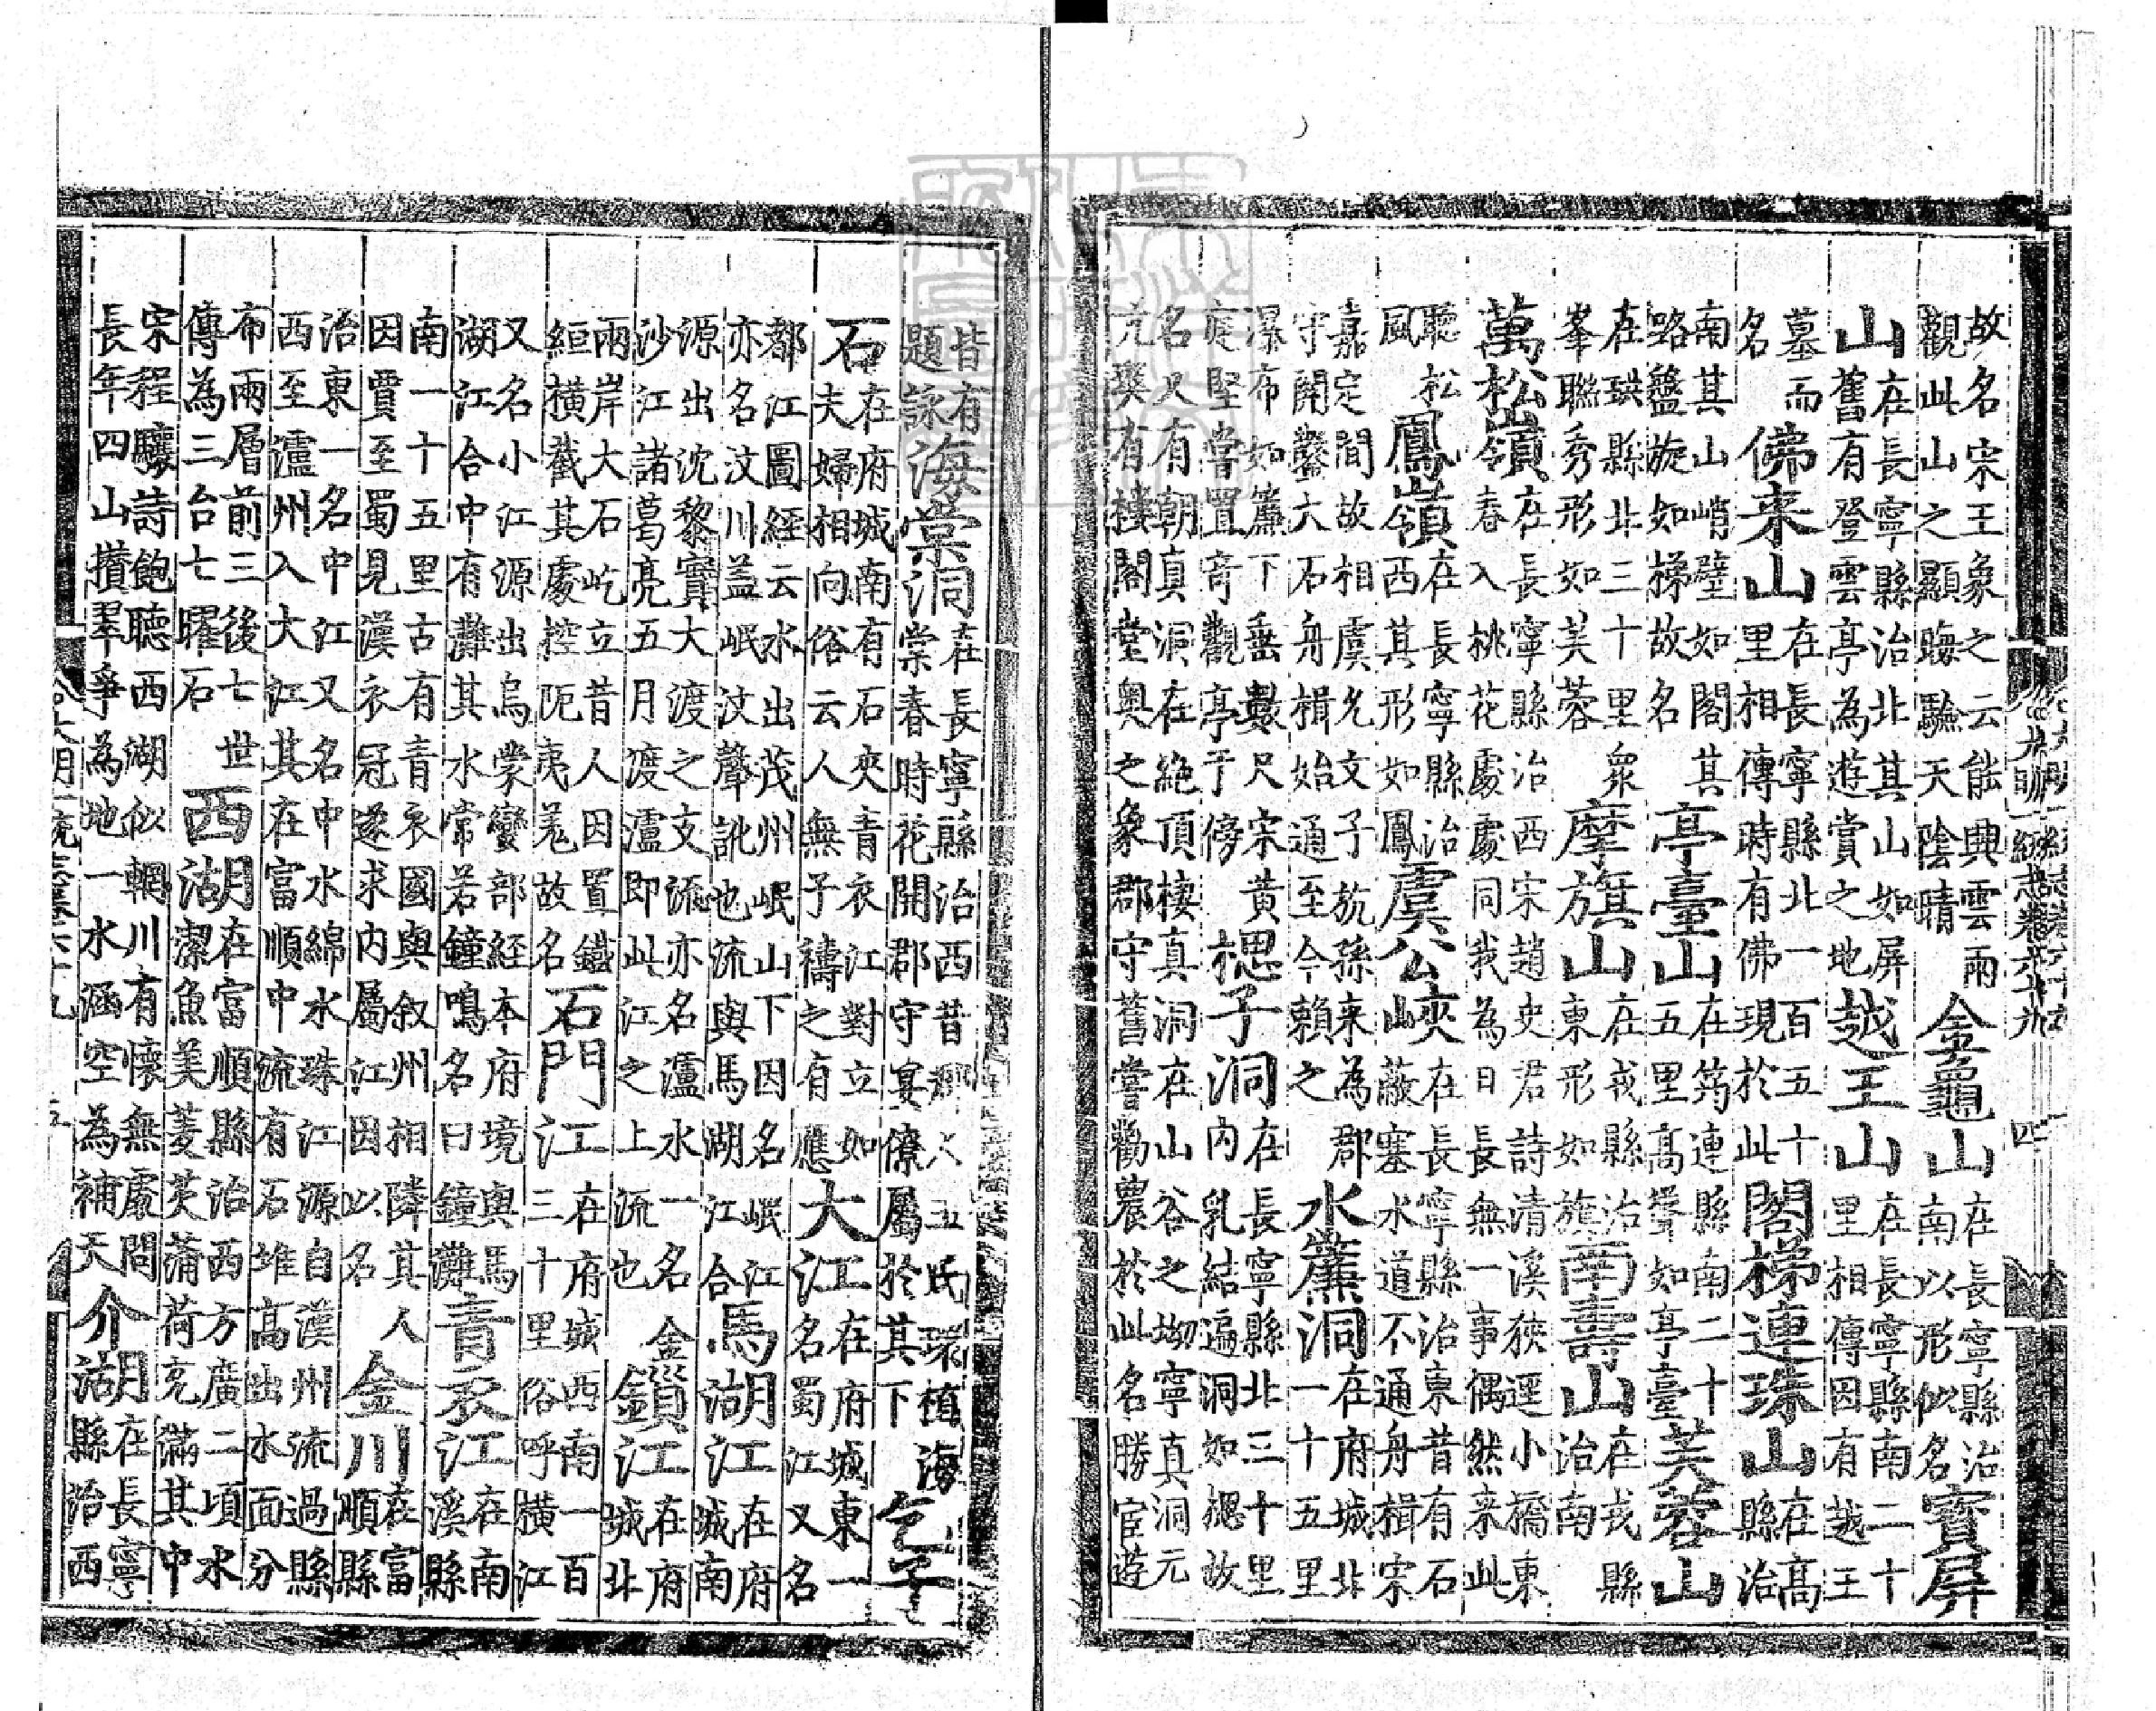 故名宋王象之云能興雲雨
觀此山之顯晦驗天陰晴
金龜山
在長寧縣治
南以形似名
寶屏
山
在長寧縣治北其山如屏
舊有登雲亭為遊賞之地
越王山
在長寧縣南二十
里相傳因有越王
墓而
名
佛来山
在長寧縣北一百五十
里相傳時有佛現於此
閣梯連珠山
在高
縣治
南其山峭壁如閣其
路盤旋如梯故名
亭臺山
在筠連縣南二十
五里高聳如亭臺
芙蓉山
在珙縣北三十里衆
峯聯秀形如芙蓉
摩旗山
在戎縣治
東形如旗
南壽山
在戎縣
治南
萬松嶺
在長寧縣治西宋趙史君詩清溪狹逕小橋東
春入桃花處處同我為日長無一事偶然来此
聽松
風
鳳嶺
在長寧縣治
西其形如鳳
虞公峽
在長寧縣治東昔有石
蔽塞水道不通舟楫宋
嘉定間故相虞允文子旂孫来為郡
守開鑿大石舟楫始通至今賴之
水簾洞
在府城北
一十五里
瀑布如簾下垂數尺宋黄
庭堅嘗置竒觀亭于傍
楒子洞
在長寧縣北三十里
内乳結遍洞如楒故
名又有朝真洞在絶頂棲真洞在山谷之坳寧真洞元
亢爽有樓閣堂奥之象郡守舊嘗勸農於此名勝宦遊
皆有
題詠
海棠洞
在長寧縣治西昔郡人王氏環植海
棠春時花開郡守宴僚屬於其下
乞子
石
在府城南有石夾青衣江對立如
夫婦相向俗云人無子禱之有應
大江
在府城東一
名蜀江又名
都江圖經云水出茂州岷山下因名岷江
亦名汶川盖岷汶聲訛也流與馬湖江合
馬湖江
在府
城南
源出沈黎實大渡之支流亦名瀘水一名金
沙江諸葛亮五月渡瀘即此江之上流也
鎖江
在府
城北
兩岸大石屹立昔人因置鐵
絙横截其處控阨夷羗故名
石門江
在府城西南一百
三十里俗呼横江
又名小江源出烏蒙蠻部經本府境與馬
湖江合中有灘其水常若鐘鳴名曰鐘灘
青衣江
在南
溪縣
南一十五里古有青衣國與叙州相隣其人
因賈至蜀見漢衣冠遂求内屬江因以名
金川
在富
順縣
治東一名中江又名中水綿水珠江源自漢州流過縣
西至瀘州入大江其在富順中流有石堆高出水面分
布兩層前三後七世
傳為三台七曜石
西湖
在富順縣治西方廣二項水
潔魚美菱芡蒲荷充滿其中
宋程驤詩飽聴西湖似輞川有懷無處問
長年四山攢翠爭為地一水涵空為補天
介湖
在長寧
縣治西